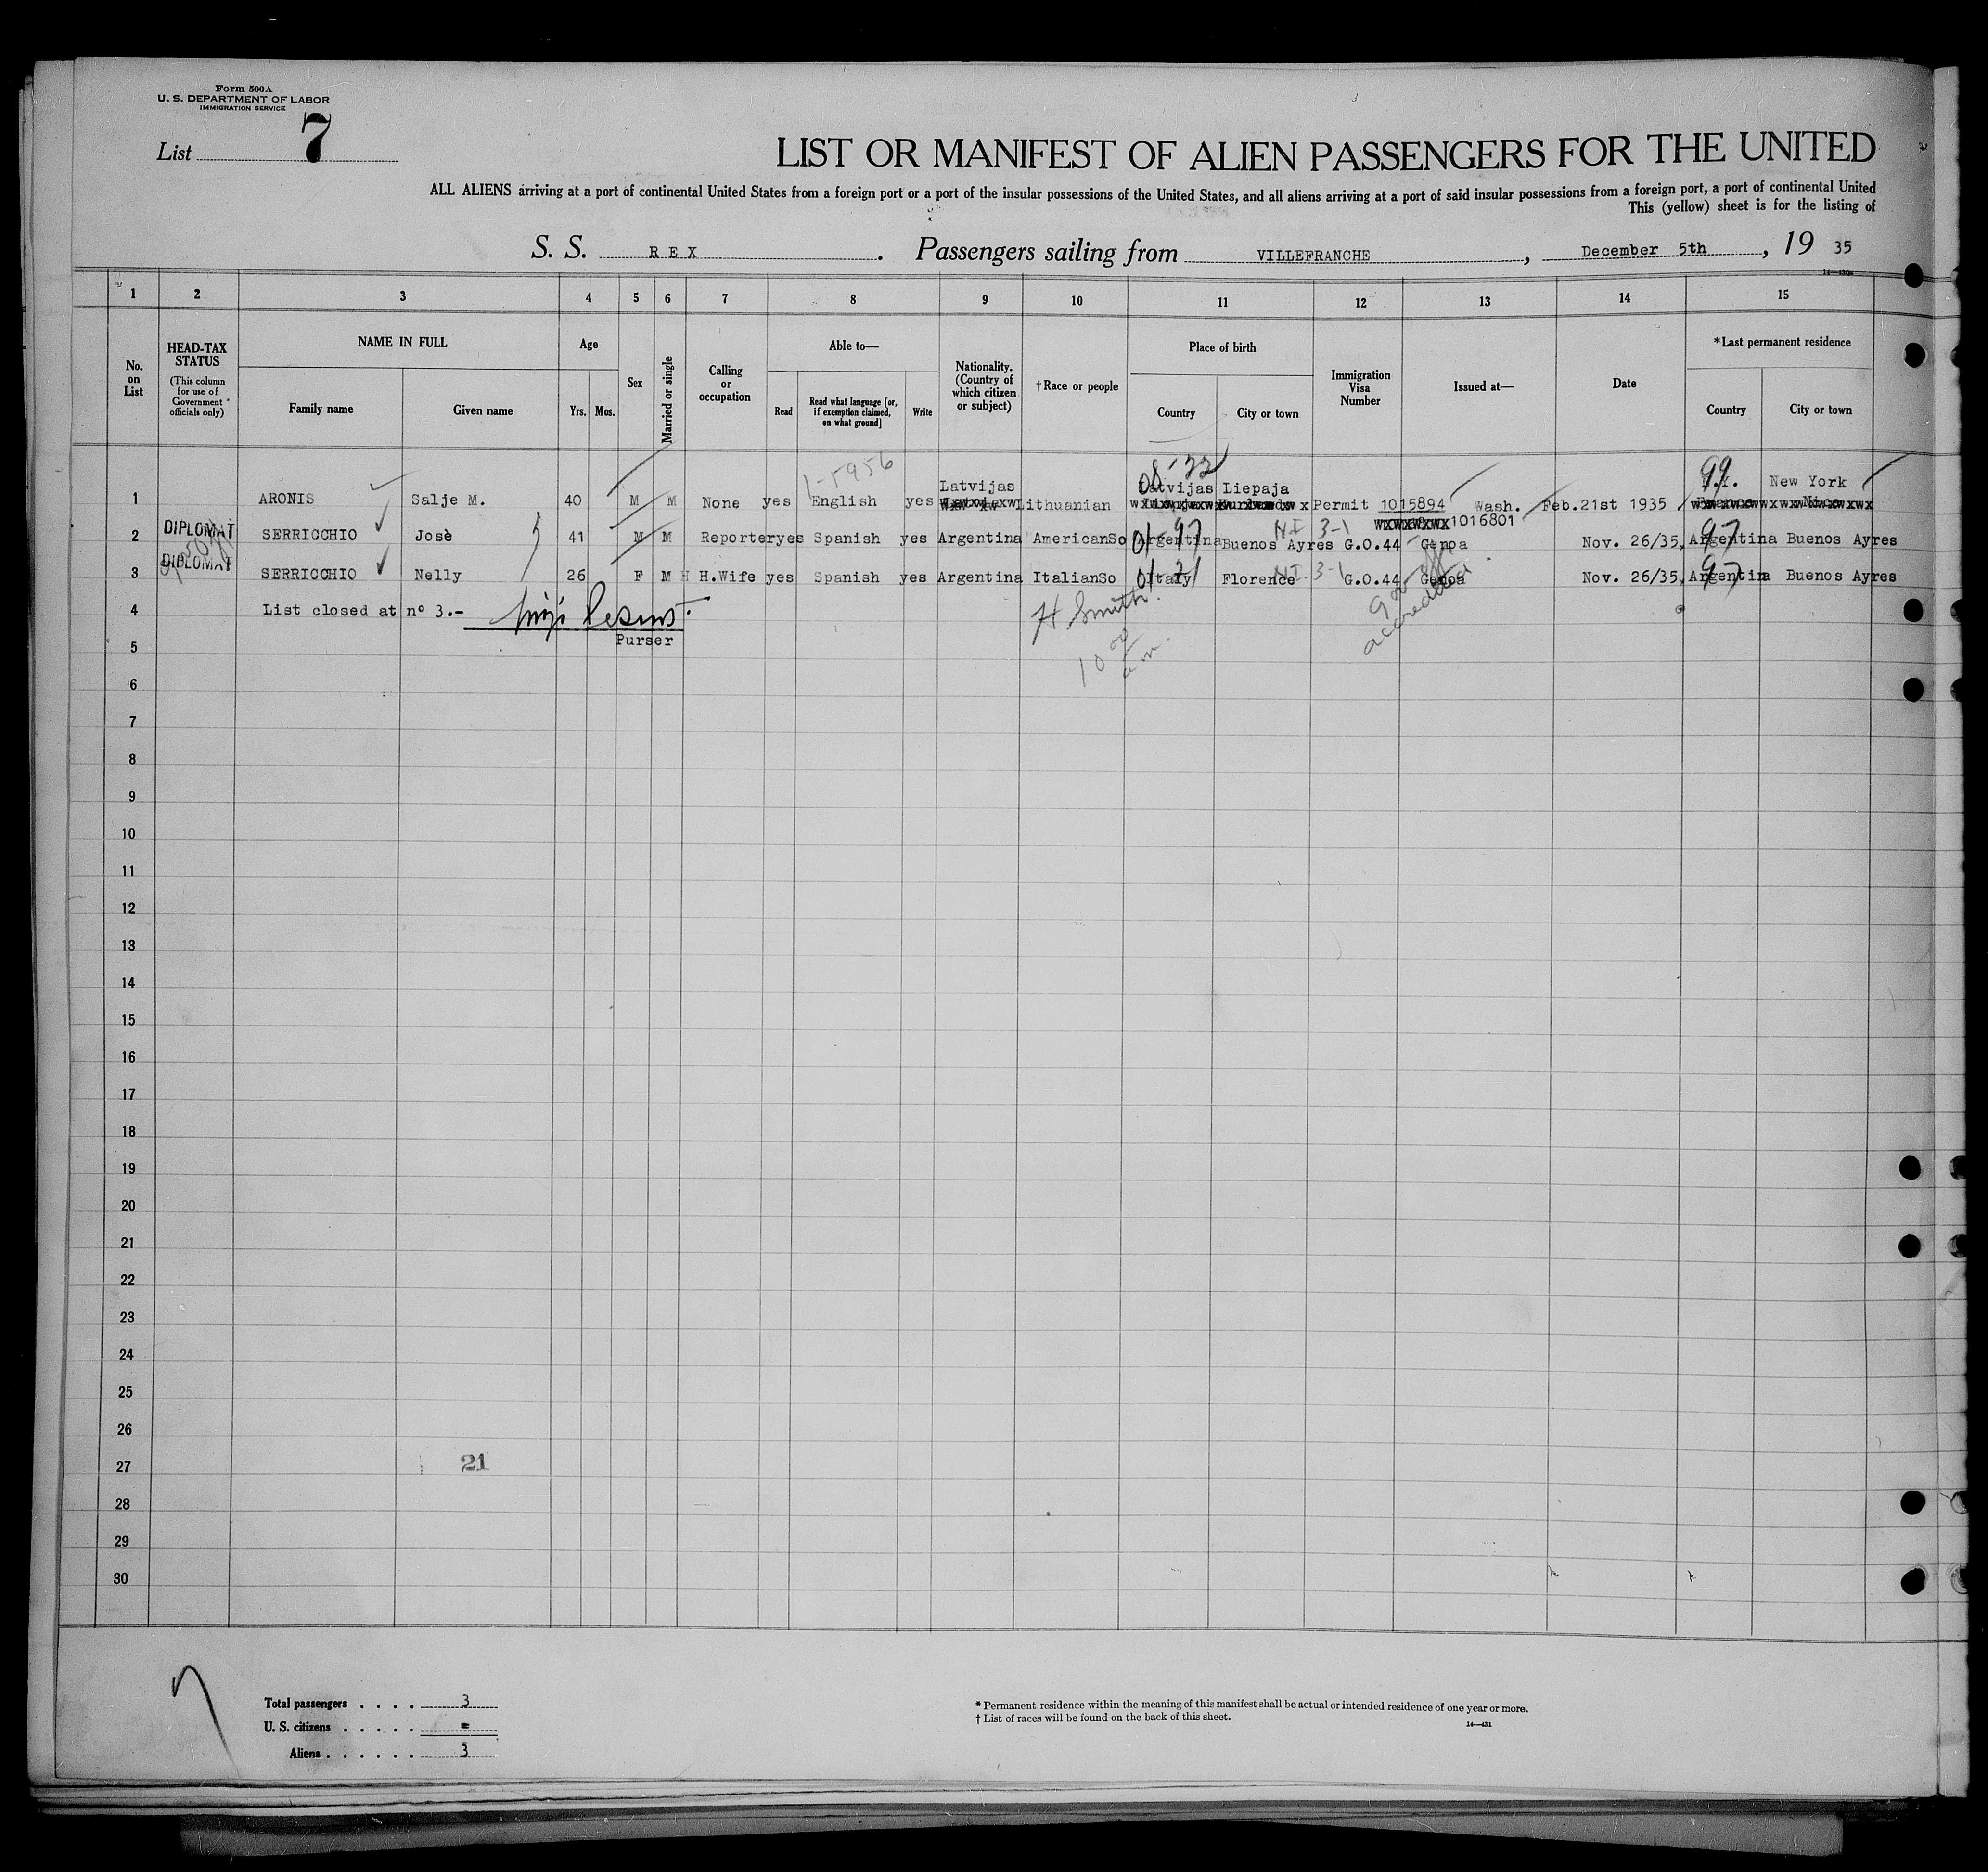 Form 500A
U. S. DEPARTMENT OF LABOR
IMMIGRATION SERVICE
List 7
LIST OR MANIFEST OF ALIEN PASSENGERS FOR THE UNITED
ALL ALIENS arriving at a port of continental United States from a foreign port or a port of the insular possessions of the United States, and all aliens arriving at a port of said insular possessions from a foreign port, a port of continental United
This (yellow) sheet is for the listing of
S. S. REX. Passengers sailing from VILLEFRANCHE, December 5th, 19 35
1 2 3 4 5 6 7 8 9 10 11 12 13 14 15
No. on List
HEAD-TAX STATUS
(This column for use of Government officials only)
NAME IN FULL
Family name
Given name
Age
Yrs. Mos.
Sex
Married or single
Calling or occupation
Able to—
Read
Read what language [or, if exemption claimed, on what ground]
Write
Nationality. (Country of which citizen or subject)
†Race or people
Place of birth
Country
City or town
Immigration Visa Number
Issued at—
Date
*Last permanent residence
Country
City or town
1-5956
08-22
99
Latvijas Latvijas Liepaja N.Y. New York
1 ARONIS Salje M. 40 M M None yes English yes Lithuanian Permit 1015894 Wash. Feb.21st 1935
1016801
2 DIPLOMAT SERRICCHIO Josè 41 M M Reporter yes Spanish yes Argentina AmericanSo Argentina Buenos Ayres G.O.44 Genoa Nov. 26/35, Argentina Buenos Ayres
01-97 N.I. 3-1 97
3 DIPLOMAT SERRICCHIO Nelly 26 F M H H.Wife yes Spanish yes Argentina ItalianSo Italy Florence G.O.44 Genoa Nov. 26/35, Argentin Buenos Ayres
01-21 N.I. 3-1 97
4 List closed at n° 3.-
Purser
H Smith
10 00 a m.
accredited
5
6
7
8
9
10
11
12
13
14
15
16
17
18
19
20
21
22
23
24
25
26
27 21
28
29
30
7
Total passengers . . . . 3
U. S. citizens . . . . . =
Aliens . . . . . . 3
* Permanent residence within the meaning of this manifest shall be actual or intended residence of one year or more.
† List of races will be found on the back of this sheet.
14—431